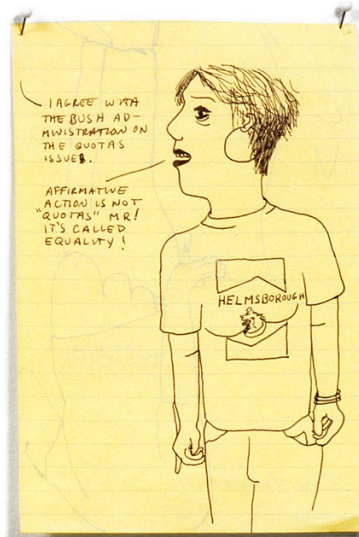 I AGREE WITH
THE BUSH AD-
MINISTRATION ON
THE QUOTAS
ISSUE.
AFFIRMATIVE
ACTION IS NOT
"QUOTAS" MR!
IT'S CALLED
EQUALITY!
HELMSBOROUGH